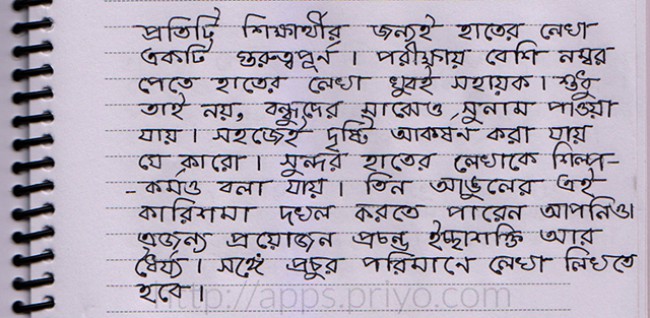 প্রতিটি শিক্ষার্থীর জন্যই হাতের লেখা
একটি গুরুত্বপূর্ন। পরীক্ষায় বেশি নম্বর
পেতে হাতের লেখা খুবই সহায়ক। শুধু
তাই নয়, বন্ধুদের মাঝেও সুনাম পাওয়া
যায়। সহজেই দৃষ্টি আকর্ষন করা যায়
যে কারো। সুন্দর হাতের লেখাকে শিল্প-
-কর্মও বলা যায়। তিন আঙুলের এই
কারিশমা দখল করতে পারেন আপনিও।
এজন্য প্রয়োজন প্রচন্ড ইচ্ছাশক্তি আর
ধৈর্য্য। সঙ্গে প্রচুর পরিমানে লেখা লিখতে
হবে।
http://apps.priyo.com